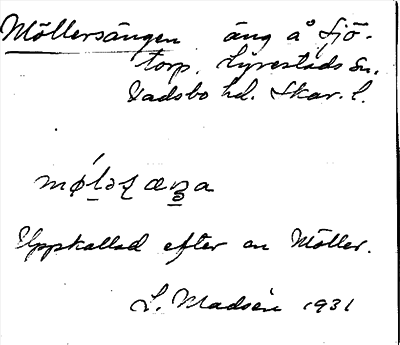 Möllersängen äng å Sjö-
torp. Lyrestads sn.
Vadsbo hd. Skar. l.
Uppkallad efter en Möller.
L. Madsén 1931